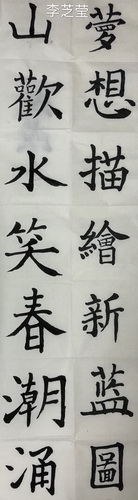 李芝莹
夢想描繪新蓝圖
山歡水笑春潮涌